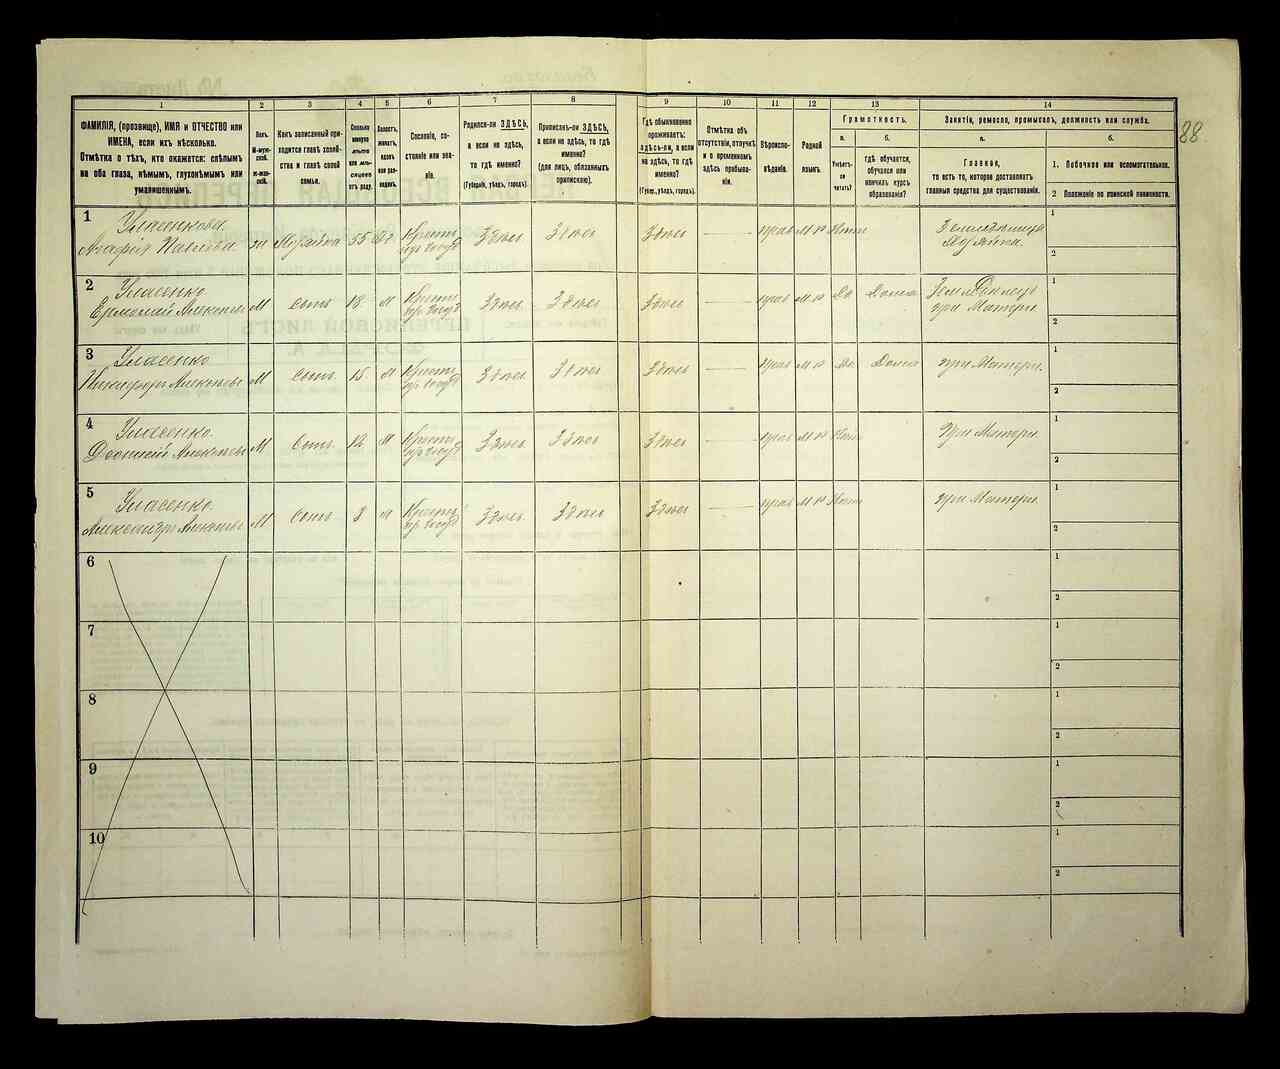 88.
1 2 3 4 5 6 7 8 9 10 11 12 13 14
ФАМИЛІЯ, (прозвище), ИМЯ и ОТЧЕСТВО или
ИМЕНА, если ихъ нѣсколько.
Отмѣтка о тѣхъ, кто окажется: слѣпымъ
на оба глаза, нѣмымъ, глухонѣмымъ или
умалишеннымъ.
Полъ.
М-муж-
ской.
ж-жен-
скій.
Какъ записанный при-
ходится главѣ хозяй-
ства и главѣ своей
семьи.
Сколько
минуло
лѣтъ
или мѣ-
сяцевъ
отъ роду.
Холостъ,
женатъ,
вдовъ
или раз-
веденъ.
Сословіе, со-
стояніе или зва-
ніе.
Родился-ли ЗДѢСЬ,
а если не здѣсь,
то гдѣ именно?
(Губернія, уѣздъ, городъ).
Приписанъ-ли ЗДѢСЬ,
а если не здѣсь, то гдѣ
именно?
(для лицъ, обязанныхъ
припискою).
Гдѣ обыкновенно
проживаетъ:
здѣсь-ли, а если
не здѣсь, то гдѣ
именно?
(Губер., уѣздъ, городъ).
Отмѣтка объ
отсутствіи, отлучкѣ
и о временномъ
здѣсь пребыва-
ніи.
Вѣроиспо-
вѣданіе.
Родной
языкъ.
Грамотность.
а. б.
Умѣетъ-
ли
читать?
гдѣ обучается,
обучался или
кончилъ курсъ
образованія?
Занятіе, ремесло, промыселъ, должность или служба.
а. б.
Главное,
то есть то, которое доставляетъ
главныя средства для существованія.
1. Побочное или вспомогательное.
2 Положеніе по воинской повинности.
1 Уласенкова
Агафія Павлова ж Хозяйка 55 вд Крест. Здѣсь Здѣсь Здѣсь прав М Р Нѣтъ
Хозяйка.
1
2
2 Уласенко
М Сынъ 18 М Крест. Здѣсь Здѣсь Здѣсь прав М Р Да Дома
при Матери.
1
2
3 Уласенко
Никифоръ М Сынъ 15 М Крест. Здѣсь Здѣсь Здѣсь прав М Р Да Дома при Матери.
1
2
4 Уласенко.
М Сынъ 12 М Крест. Здѣсь Здѣсь Здѣсь прав М Р Нѣтъ При Матери.
1
2
5 Уласенко.
Александръ М Сынъ 8 М Крест. Здѣсь Здѣсь Здѣсь прав М Р Нѣтъ при Матери.
1
2
6
1
2
7
1
2
8
1
2
9
1
2
10
1
2